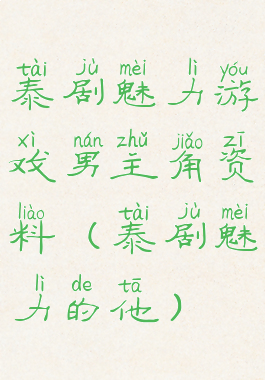 tài jù mèi lì yóu
泰剧魅力游
xì nán zhǔ jiǎo zī
戏男主角资
liào tài jù mèi
料（泰剧魅
lì de tā
力的他）